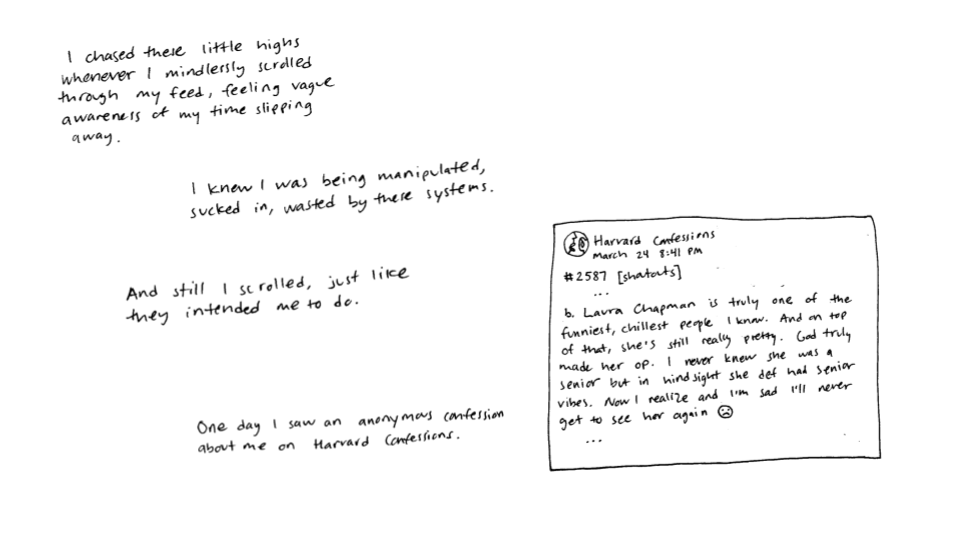 I chased these little highs
whenever I mindlessly scrolled
through my feed, feeling vague
awareness of my time slipping
away.
I knew I was being manipulated,
sucked in, wasted by these systems.
And still I scrolled, just like
they intended me to do.
One day I saw an anonymous confession
about me on Harvard Confessions.
Harvard Confessions
March 24 8:41 PM
#2587 [shatouts]
...
b. Laura Chapman is truly one of the
funniest, chillest people I know. And on top
of that, she's still really pretty. God truly
made her op. I never knew she was a
senior but in hindsight she def had senior
vibes. Now I realize and I'm sad I'll never
get to see her again ☹
...